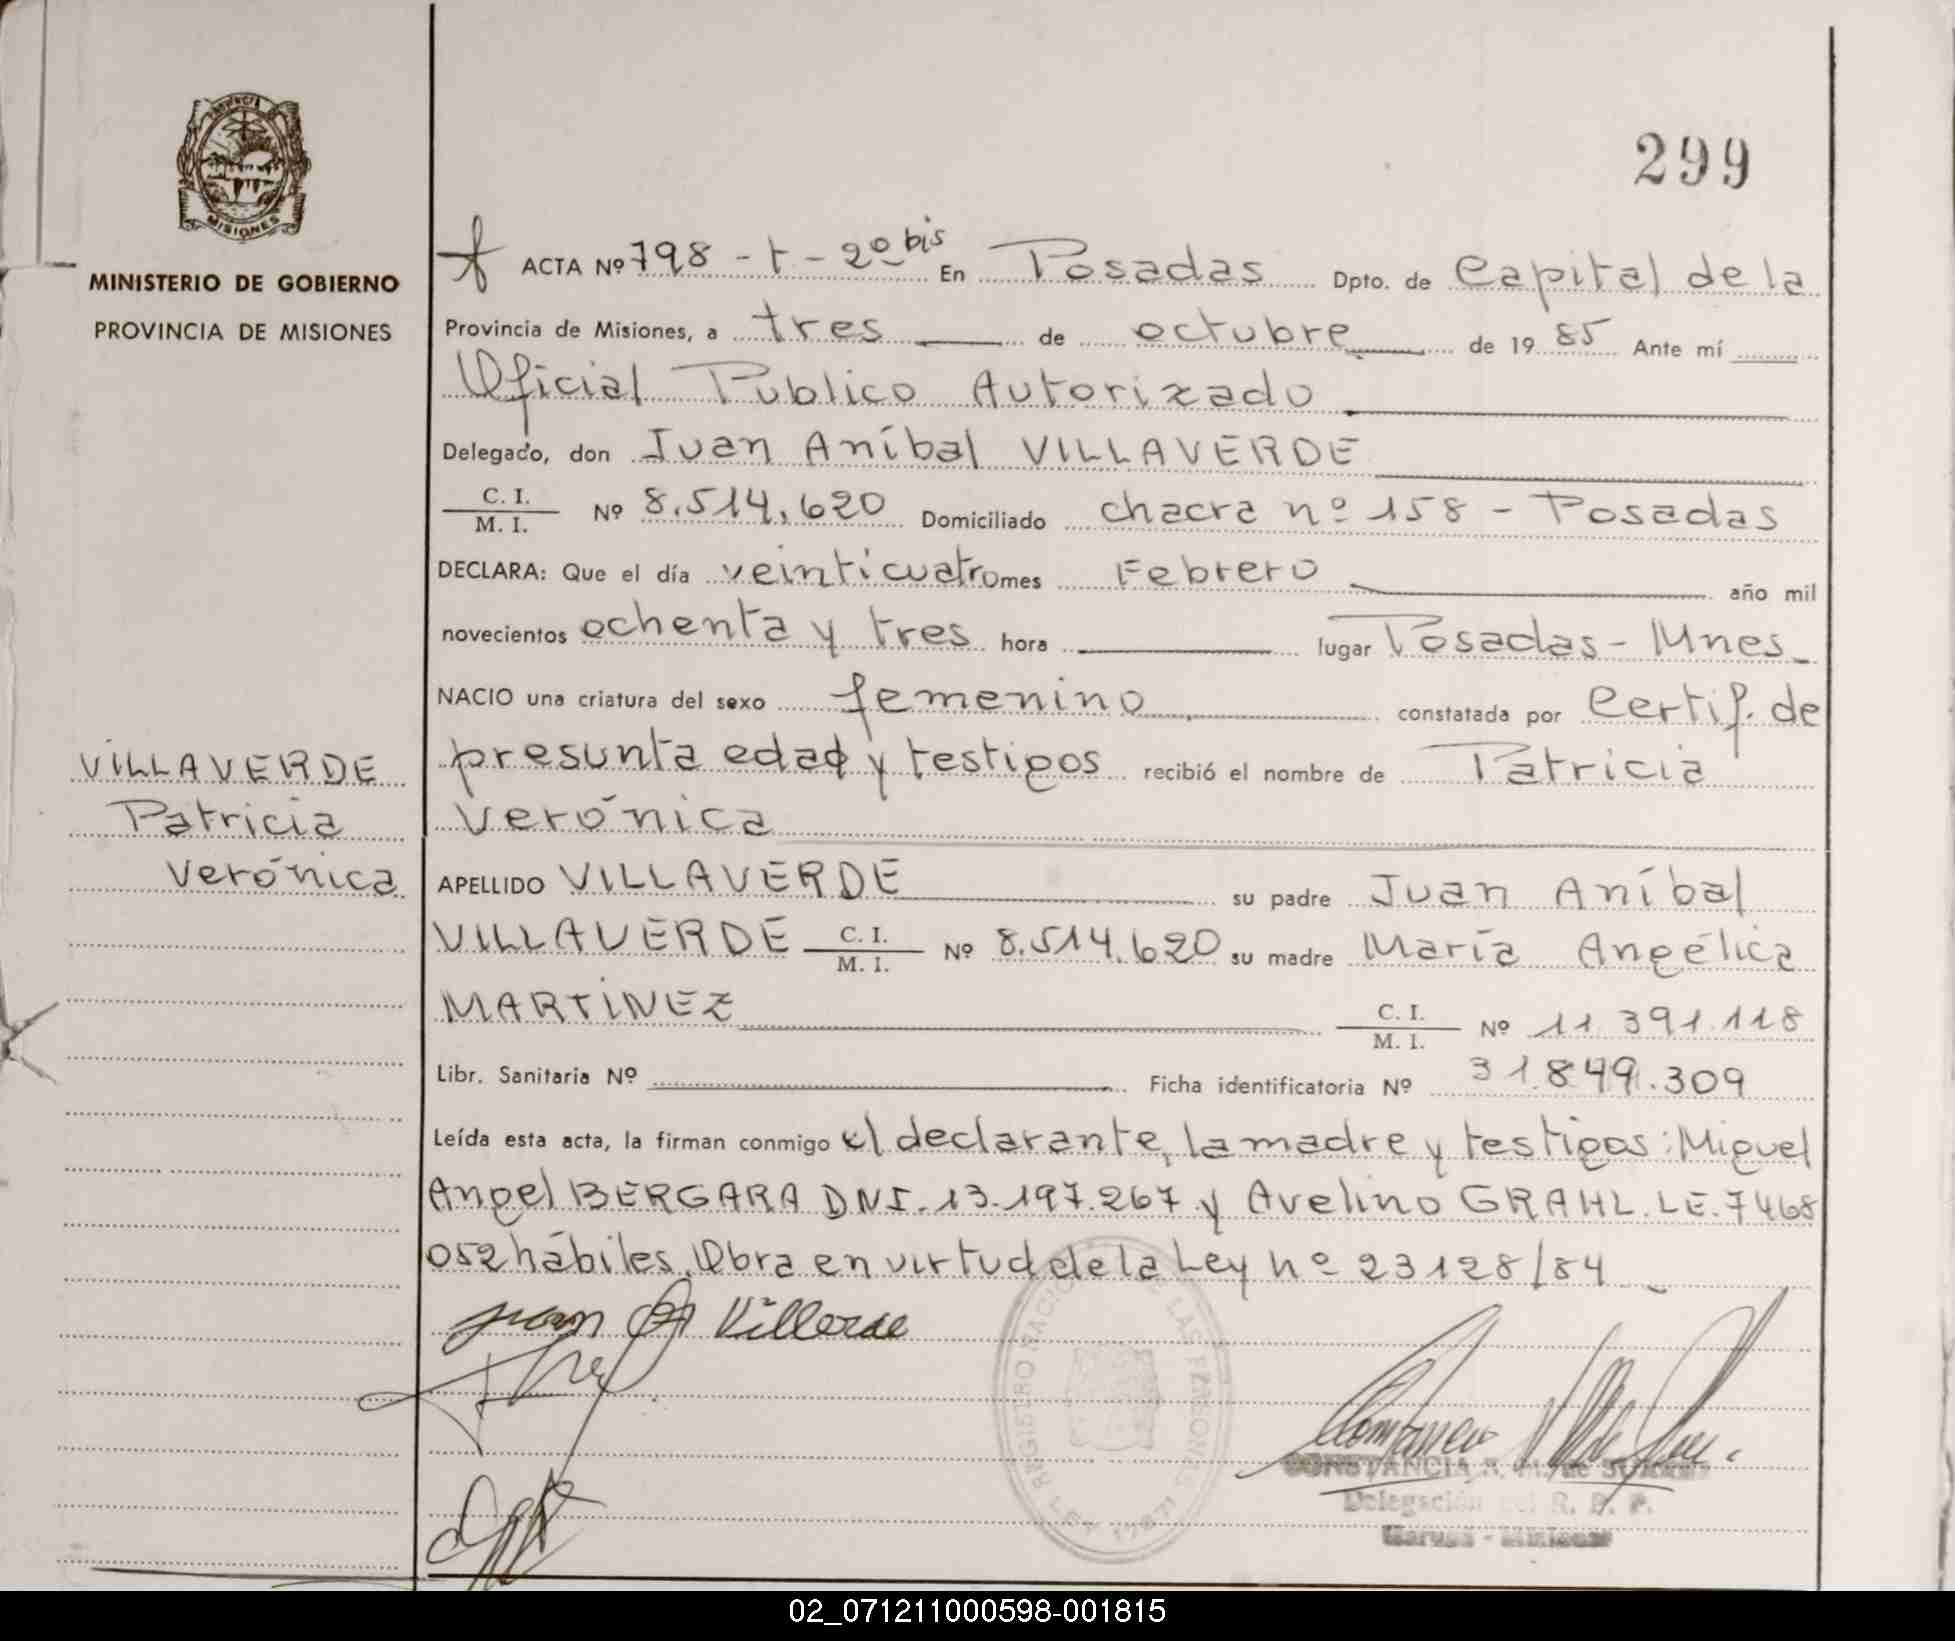 299
PROVINCIA
MISIONES
MINISTERIO DE GOBIERNO
PROVINCIA DE MISIONES
VILLAVERDE
Patricia
Verónica
ACTA Nº 798 - t - 2º bis En Posadas Dpto. de Capital de la
Provincia de Misiones, a tres de octubre de 19 85 Ante mí
Oficial Publico Autorizado
Delegado, don Juan Aníbal VILLAVERDE
C. I.
M. I. Nº 8.514.620 Domiciliado chacra nº 158 - Posadas
DECLARA: Que el día veinticuatro mes Febrero año mil
novecientos ochenta y tres hora lugar Posadas - Mnes
NACIO una criatura del sexo femenino constatada por Certif. de
presunta edad y testigos recibió el nombre de Patricia
Verónica
APELLIDO VILLAVERDE su padre Juan Aníbal
VILLAVERDE C. I. M. I. Nº 8.514.620 su madre María Angélica
MARTINEZ C. I. M. I. Nº 11.391.118
Libr. Sanitaria Nº Ficha identificatoria Nº 31.849.309
Leída esta acta, la firman conmigo el declarante, la madre y testigos: Miguel
Angel BERGARA DNI. 13.197.267 y Avelino GRAHL. LE. 7468
052 hábiles. Obra en virtud de la Ley nº 23128/84
Juan A Villerde
REGISTRO NACIONAL DE LAS PERSONAS
LEY
CONSTANCIA
Delegación del R. P.
02_071211000598-001815